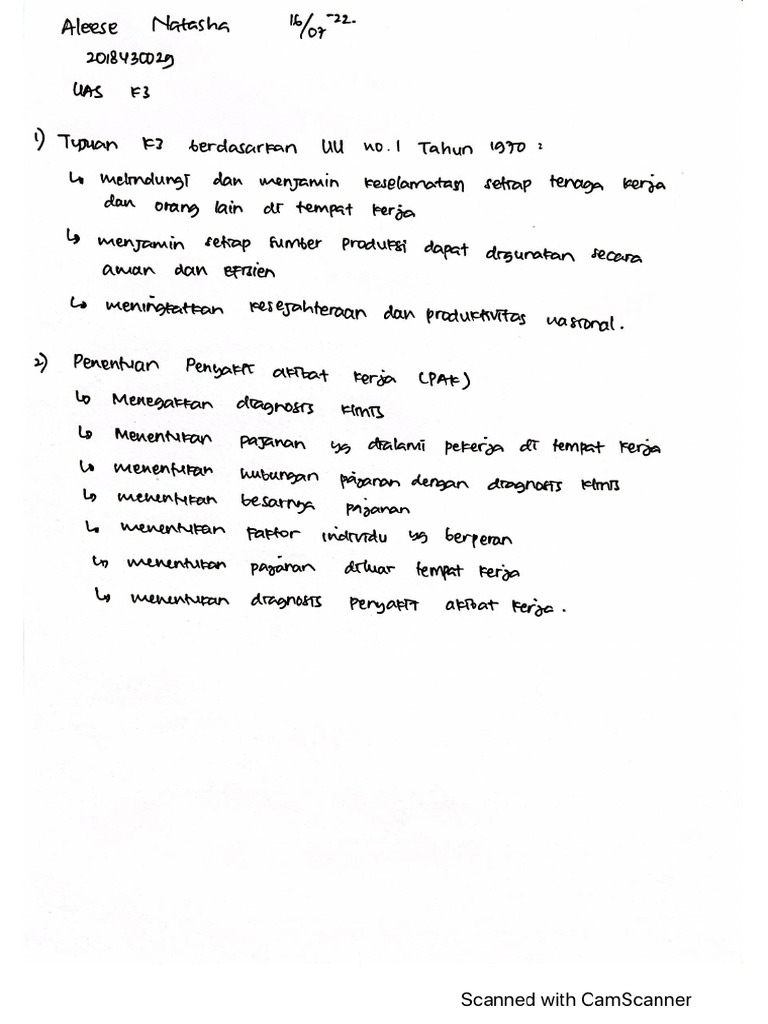 Aleese Natasha 16/07-22.
2018430029
UAS K3
1) Tujuan K3 berdasarkan UU no. 1 Tahun 1970 :
↳ melindungi dan menjamin keselamatan setiap tenaga kerja
dan orang lain di tempat kerja
↳ menjamin setiap sumber produksi dapat digunakan secara
aman dan efisien
↳ meningkatkan kesejahteraan dan produktivitas nasional.
2) Penentuan Penyakit akibat kerja (PAK)
↳ Menegakkan diagnosis klinis
↳ Menentukan pajanan yg dialami pekerja di tempat kerja
↳ menentukan hubungan pajanan dengan diagnosis klinis
↳ menentukan besarnya pajanan
↳ menentukan faktor individu yg berperan
↳ menentukan pajanan diluar tempat kerja
↳ menentukan diagnosis penyakit akibat kerja.
Scanned with CamScanner